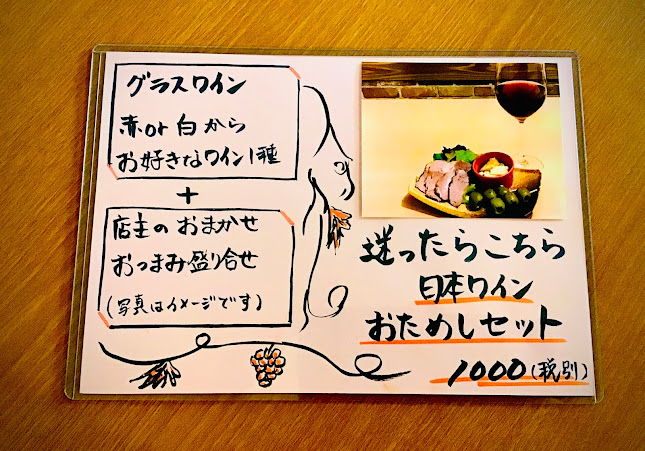 グラスワイン
赤or白から
お好きなワイン1種
+
店主のおまかせ
おつまみ盛り合せ
(写真はイメージです)
迷ったらこちら
日本ワイン
おためしセット
1000(税別)